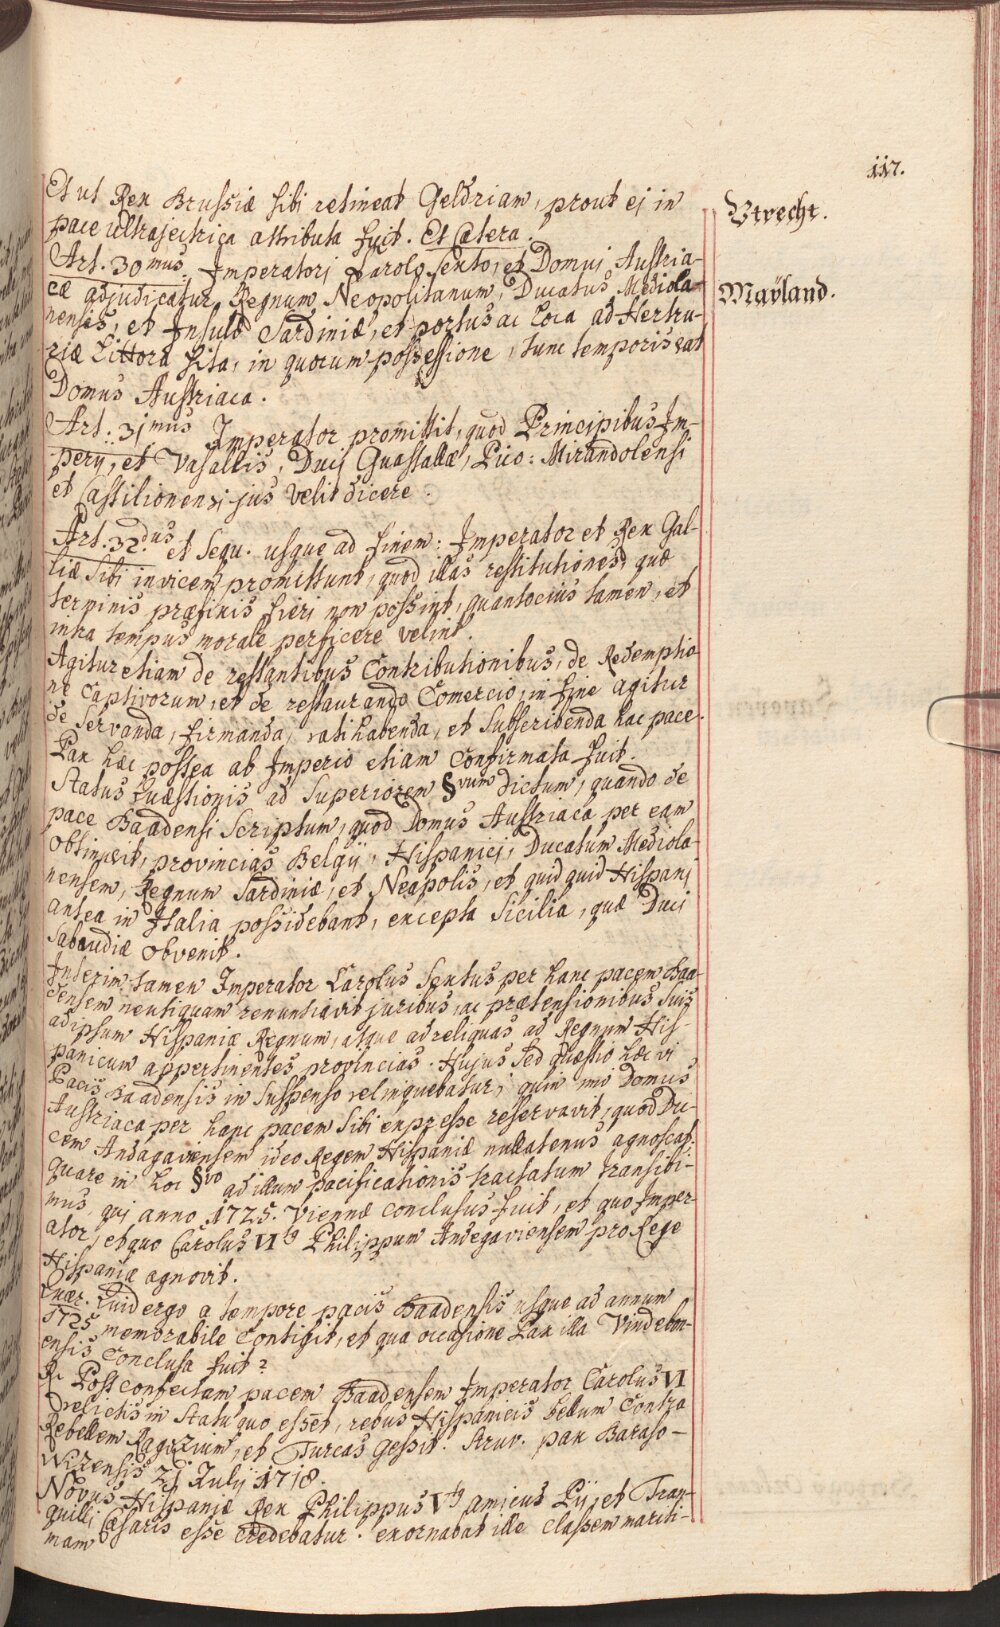 117.
Et ut Rex Brussiæ sibi retineat Geldriam, prout ej in
pace Ultrajectrica attributa fuit. Et Cætera.
Utrecht.
Art. 30mus. Imperatorj Carolo Sexto, et Domuj Austria-
cæ adjudicatur Regnum Neopolitanum, Ducatus Mediola-
Maÿland.
nensis, et Insula Sardiniæ, et portus ac loca ad Hertru-
riæ Littora sita, in quorum possessione, tunc temporis erat
Domus Austriaca.
Art. 31mus Imperator promittit, quod Principibus Im-
perij, et Vasallis, Ducj Guastallæ, Pico: Mirandolensi
et Castilionensi jus velit dicere.
Art. 32dus et Sequ. usque ad finem: Imperator et Rex Gal-
liæ Sibi invicem promittunt, quod illas restitutiones, quæ
terminis præfixis fierj non possint, quantocius tamen, et
intra tempus morale perficere velint.
Agitur etiam de restantibus Contributionibus, de Redemptio-
ne Captivorum, et de restaurando Comercio, in fine agitur
de Servanda, firmanda, ratihabenda, et Subscribenda hac pace.
Pax hæc postea ab Imperio etiam Confirmata fuit.
Status Quæstionis ad Superiorem §vum Dictum, quando de
pace Baadensi Scriptum, quod Domus Austriaca per eam
obtinuerit, provincias Belgij, Hispanicj, Ducatum Mediola-
nensem, Regnum Sardiniæ, et Neapolis, et quid quid Hispanj
antea in Italia possidebant, excepta Sicilia, quæ Ducj
Sabaudiæ obvenit.
Interim tamen Imperator Carolus Sextus per hanc pacem Baa-
densem neutiquam renuntiavit juribus, ac prætensionibus Suis
ad ipsum Hispaniæ Regnum, atque ad reliquas ad Regnum His-
panicum appertinentes provincias. Hujus Sed quæstio hæc vi
Pacis Baadensis in Suspenso relinquebatur; quin imo Domus
Austriaca per hanc pacem Sibi expresse reservavit, quod Du-
cem Andagaviensem ideo Regem Hispaniæ nullatenus agnoscat.
quare in hoc §vo ad illum pacificationis tractatum transibi-
mus, quj anno 1725. Viennæ conclusus fuit, et quo Imper-
ator, et quo Carolus VIg Philippum Andegaviensem pro Rege
Hispaniæ agnovit.
Quær. Quid ergo a tempore pacis Baadensis usque ad annum
1725 memorabile Contigit, et qua occasione Pax illa Vindebon-
ensis Conclusa fuit?
R. Post confectam pacem Baadensem Imperator Carolus VI
relictis in Statu quo essēt, rebus Hispanicis bellum Contra
Rebellem Ragozium, et Turcas gessit. Struv. pax Baraso-
Wizensis 21 Julij 1718.
Novus Hispaniæ Rex Philippus Vtg amicus Pij, et Tran-
quilli Cæsaris esse credebatur. exornabat ille classem mariti-
mam